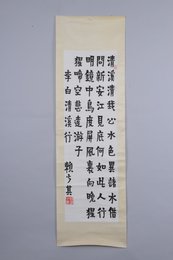 清溪清我心水色異諸水借
問新安江見底何如此人行
明鏡中鳥度屏風裏向晚猩
猩啼空悲遠遊子
李白清溪行 賴少其